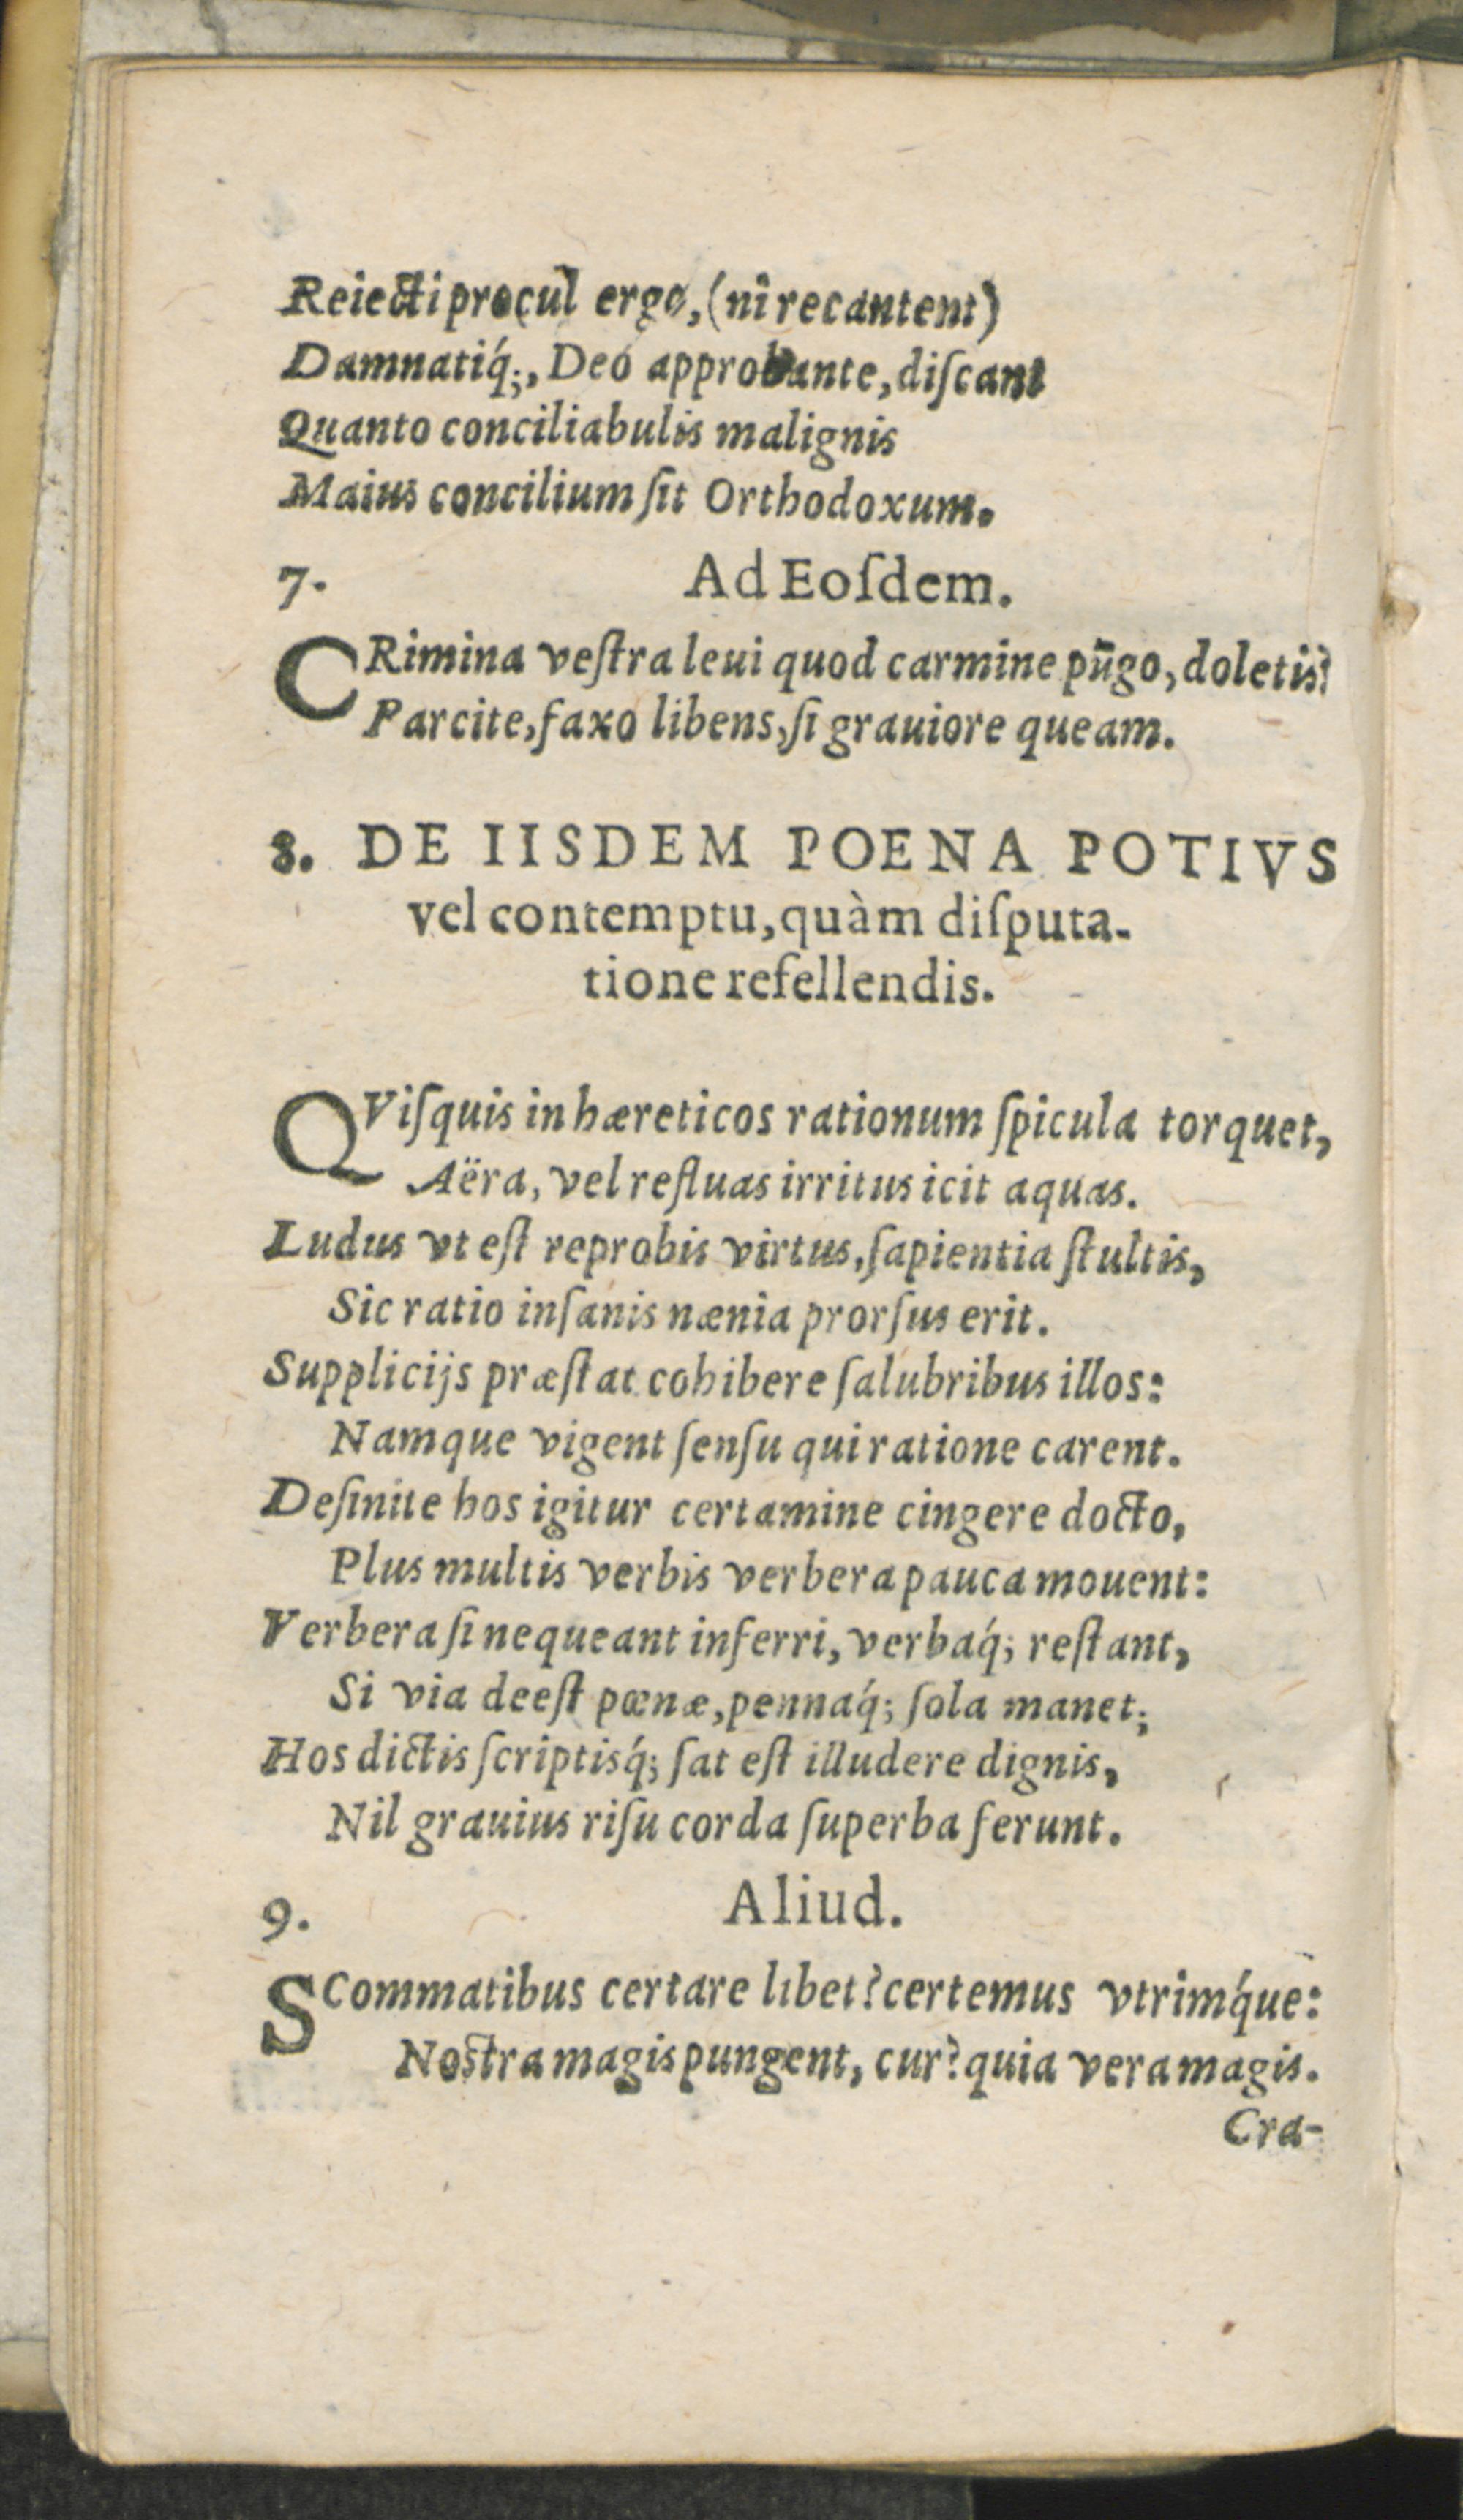 Reiecti procul ergo, (ni recantent)
Damnatiq́;, Deó approbante, diſcant
Quanto conciliabulis malignis
Maius concilium ſit Orthodoxum.
7. Ad Eoſdem.
CRimina veſtra leui quod carmine pūgo, doletis?
Parcite, faxo libens, ſi grauiore queam.
8. DE IISDEM POENA POTIVS
vel contemptu, quàm diſputa-
tione refellendis.
QViſquis in hæreticos rationum ſpicula torquet,
Aëra, vel refluas irritus icit aquas.
Ludus vt eſt reprobis virtus, ſapientia ſtultis,
Sic ratio inſanis nænia prorſus erit.
Supplicijs præſtat cohibere ſalubribus illos:
Namque vigent ſenſu qui ratione carent.
Deſinite hos igitur certamine cingere docto,
Plus multis verbis verbera pauca mouent:
Verbera ſi nequeant inferri, verbaq́; reſtant,
Si via deeſt pœnæ, pennaq́; ſola manet;
Hos dictis ſcriptisq́; ſat eſt illudere dignis,
Nil grauius riſu corda ſuperba ferunt.
9. Aliud.
SCommatibus certare libet? certemus vtrimq́ue:
Noſtra magis pungent, cur? quia vera magis.
Cra-